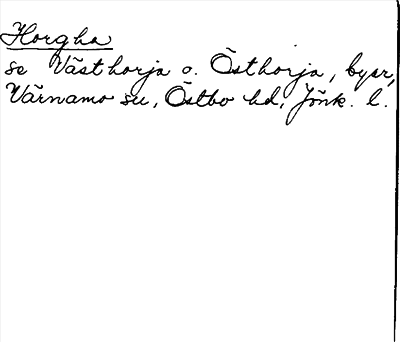 Horgha
se Västhorja o. Östhorja, byar,
Värnamo sn, Östbo hd, Jönk. l.